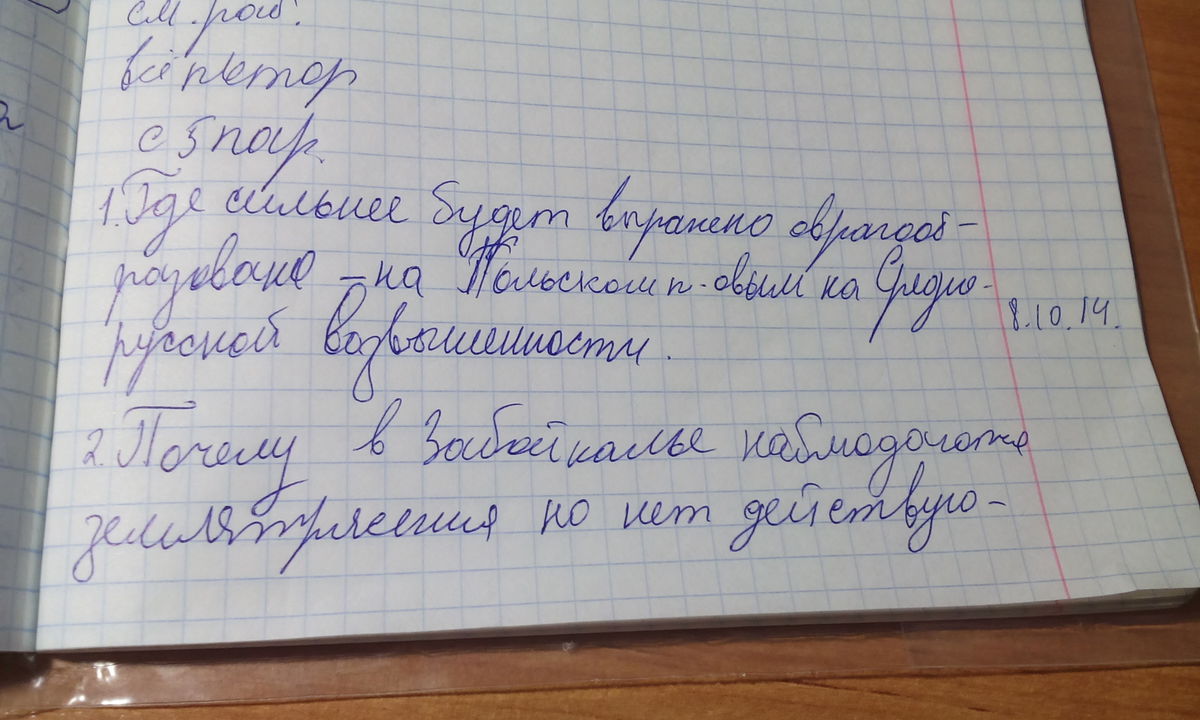 см. раб.
всё повтор
с 5 пар.
1. Где сильнее будет выражено оврагооб-
разовано – на Польском п-овым на Средно-
русской возвышенности.
8.10.14.
2. Почему в Забайкалье наблюдаются
землятрясения но нет действую-